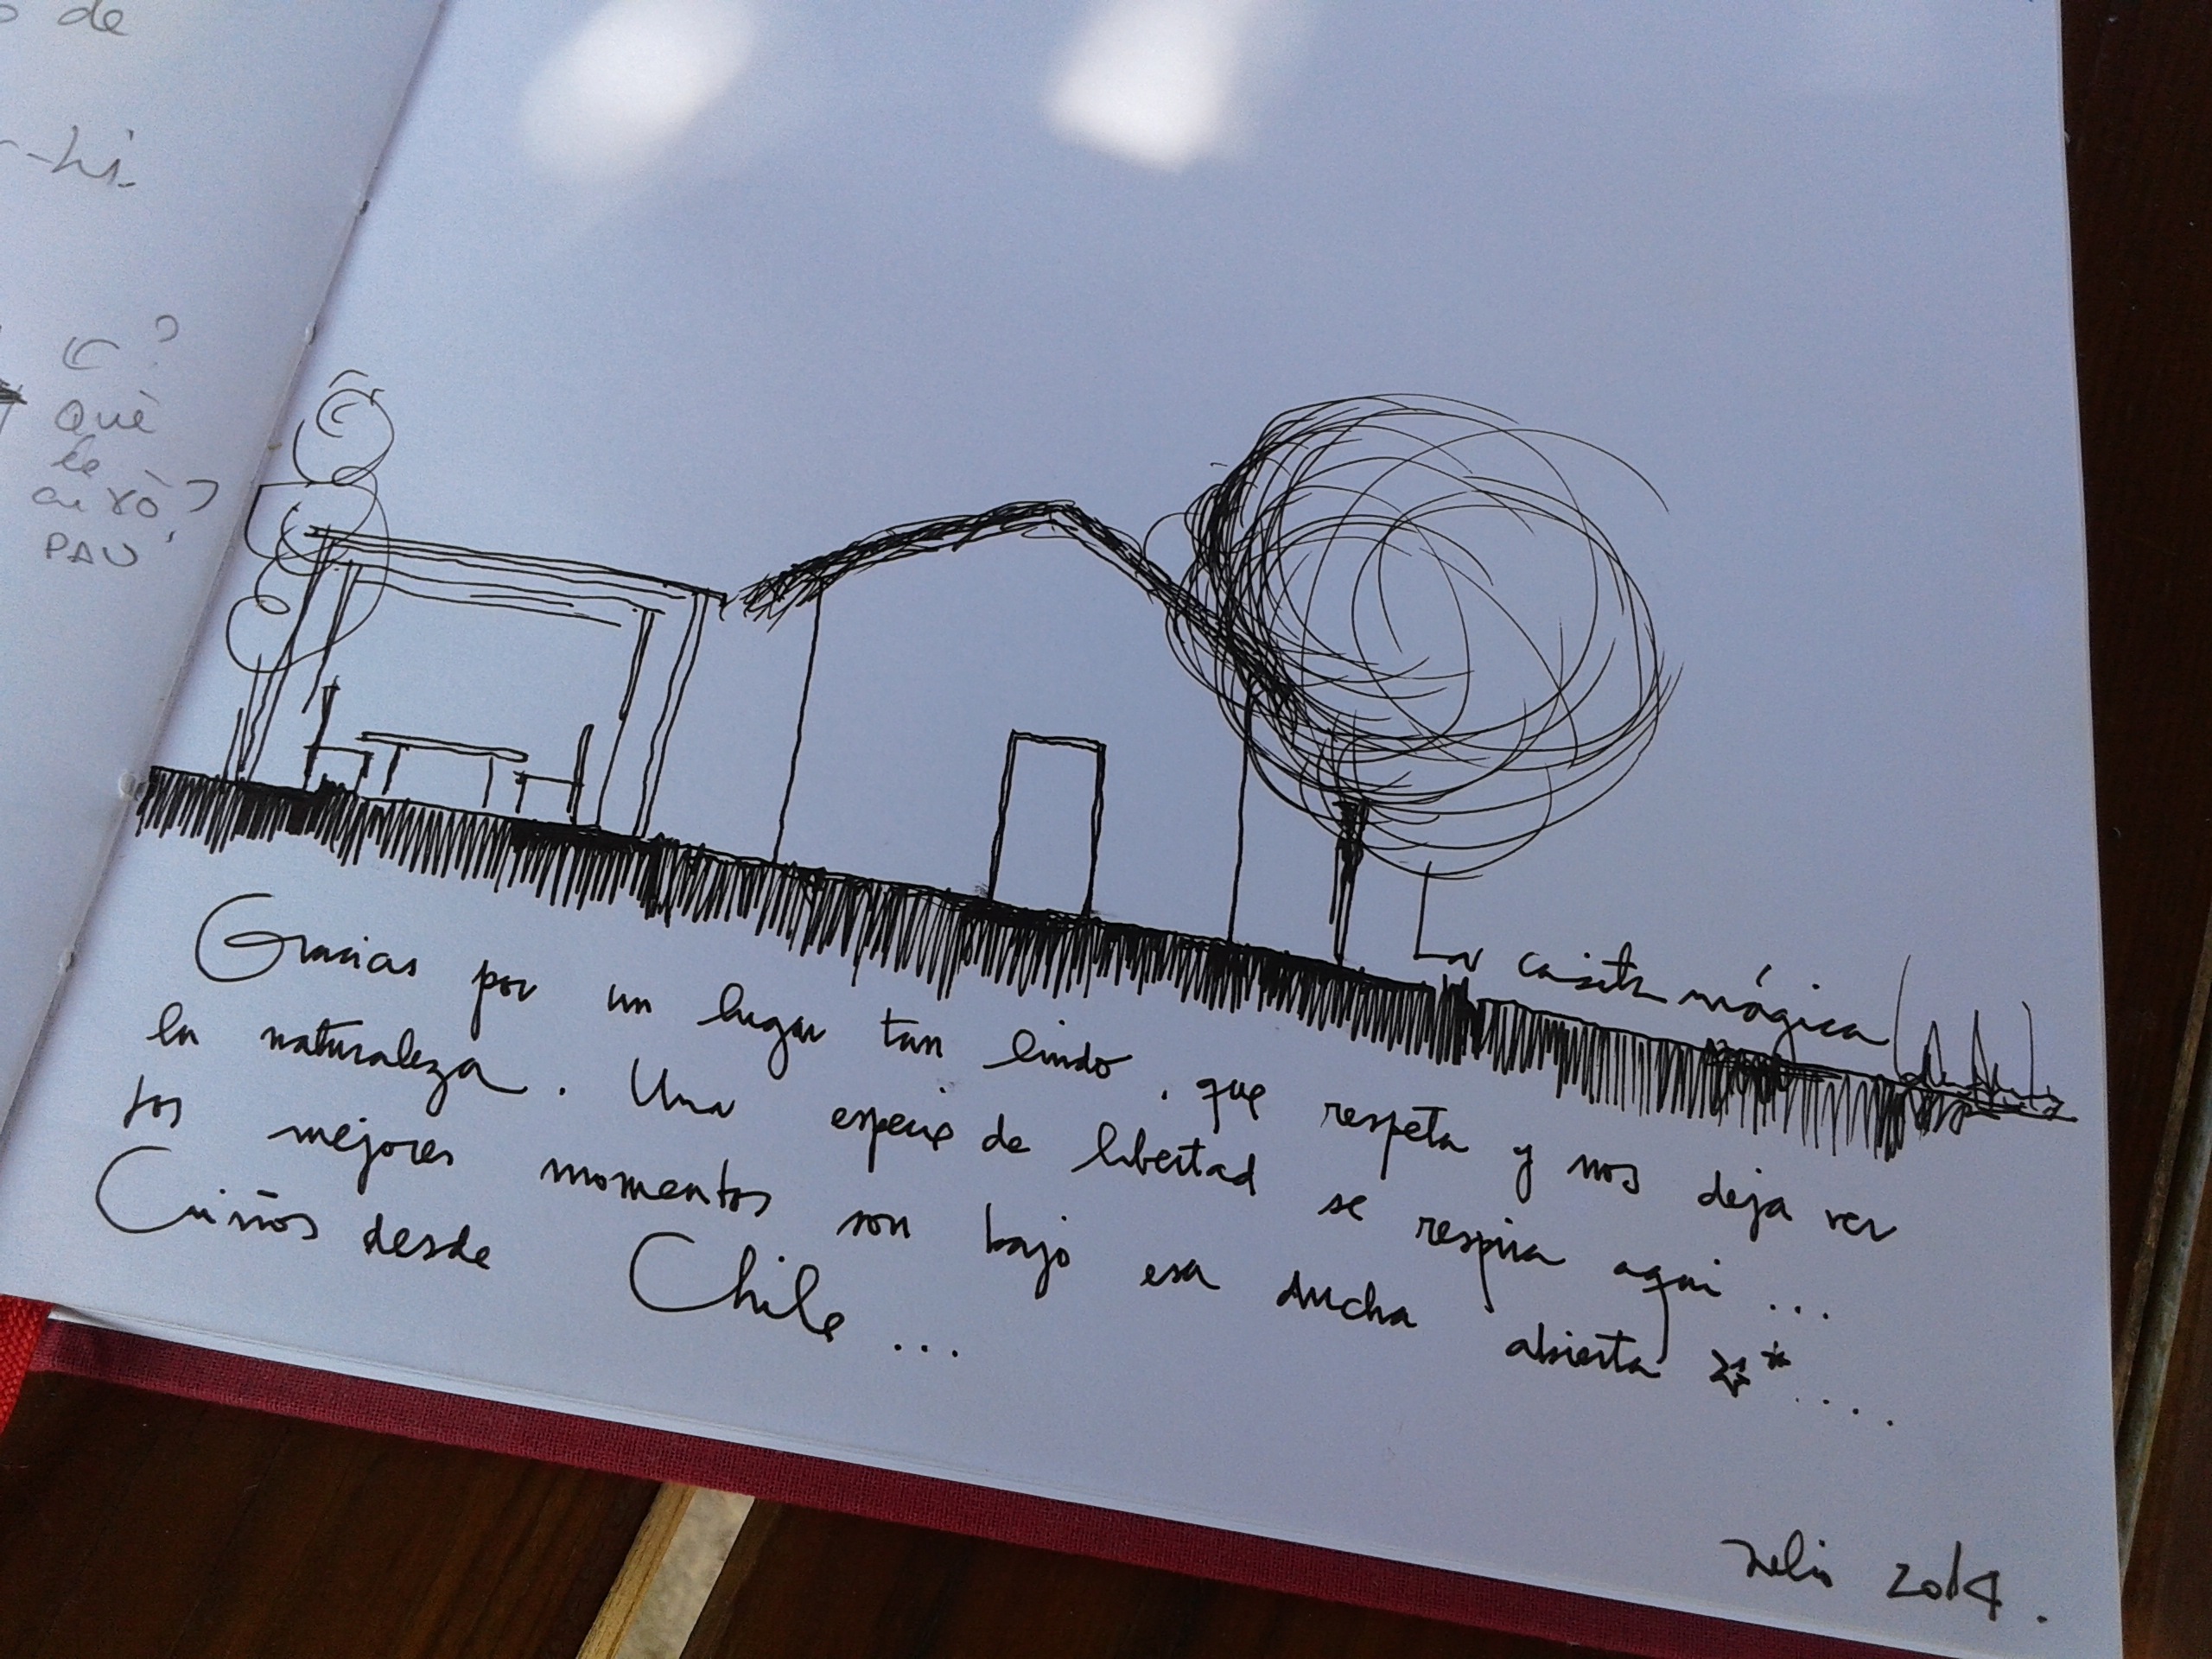 de
què
és
això?
PAU
La casita mágica
Gracias por un lugar tan lindo, que respeta y nos deja ver
la naturaleza. Una especie de libertad se respira aqui ...
los mejores momentos son bajo esa ducha abierta ....
Cariños desde Chile ...
2014.